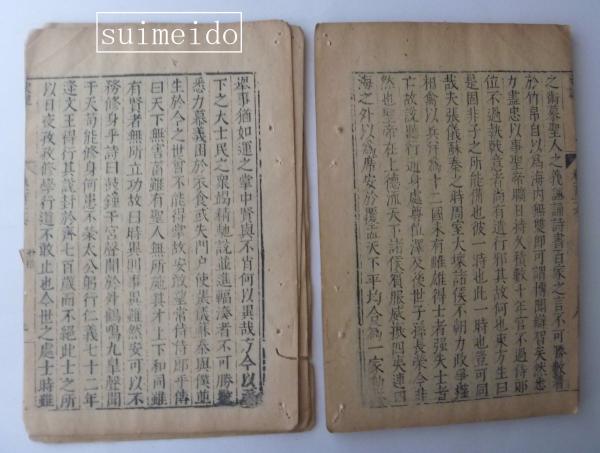 suimeido
之術慕聖人之義諷誦詩書百家之言不可勝數著
於竹帛自以為海内無雙即可謂博聞辯智矣然悉
力盡忠以事聖帝曠日持久積數十年官不過侍郎
位不過執戟意者尚有遺行邪其故何也東方生曰
是固非子之所能備也彼一時也此一時也豈可同
哉夫張儀蘇秦之時周室大壞諸侯不朝力政爭權
相禽以兵并為十二國未有雌雄得士者彊失士者
亡故說聽行通身處尊位澤及後世子孫長榮今非
然也聖帝在上德流天下諸侯賓服威振四夷連四
海之外以為席安於覆盂天下平均合為一家動
舉事猶如運之掌中賢與不肖何以異哉方今以天
下之大士民之眾竭精馳說並進輻湊者不可勝數
悉力慕義困於衣食或失門戶使張儀蘇秦與僕並
生於今之世曾不能得掌故安敢望常侍侍郎乎傳
曰天下無害菑雖有聖人無所施其才上下和同雖
有賢者無所立功故曰時異則事異雖然安可以不
務修身乎詩曰鼓鍾于宮聲聞於外鶴鳴九皋聲聞
于天苟能修身何患不榮太公躬行仁義七十二年
逢文王得行其說封於齊七百歲而不絕此士之所
以日夜孜孜修學行道不敢止也今世之處士時雖